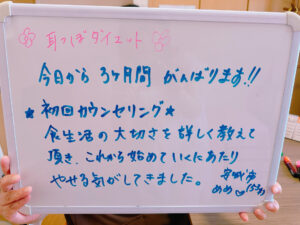 耳つぼダイエット
今日から 3ヶ月間 がんばります!!
★初回カウンセリング★
食生活の大切さを詳しく教えて
頂き、これから始めていくにあたり
やせる気がしてきました。
宮城
めめ♡